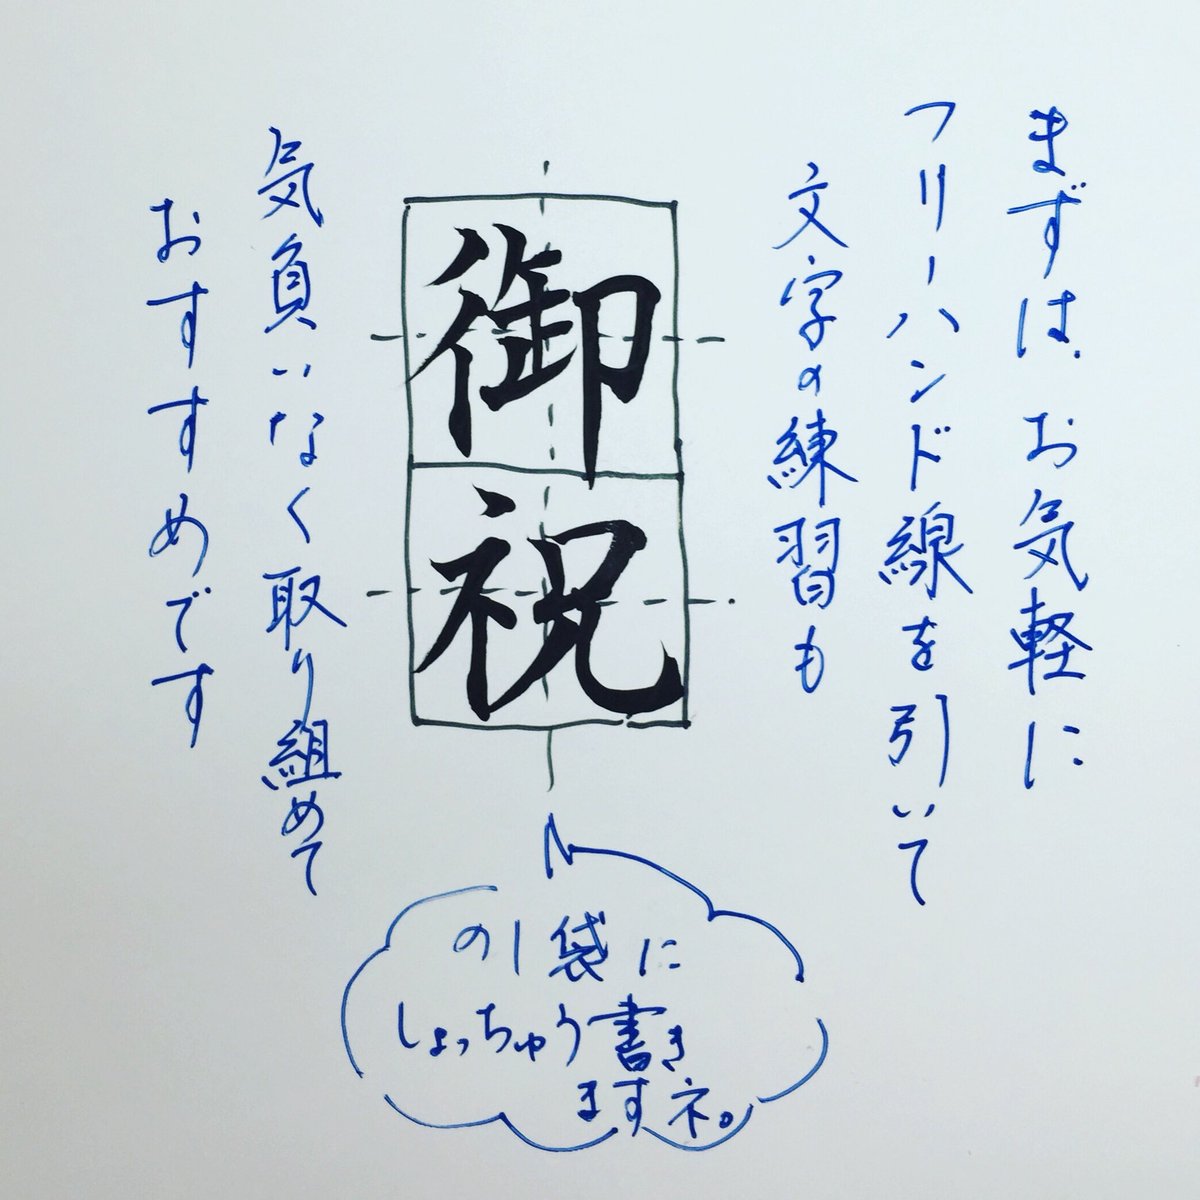 まずは、お気軽に
フリーハンド線を引いて
文字の練習も
御祝
気負いなく取り組めて
おすすめです
のし袋に
しょっちゅう書き
ますネ。